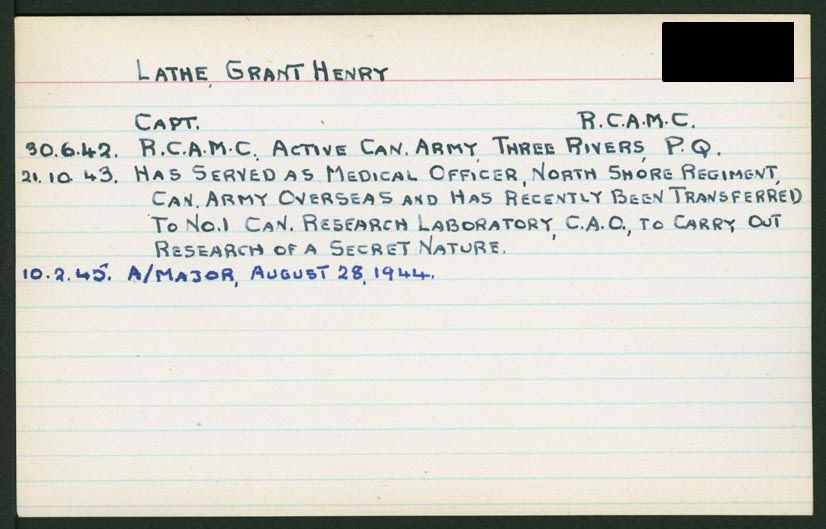 LATHE, GRANT HENRY
CAPT. R.C.A.M.C.
30.6.42. R.C.A.M.C. ACTIVE CAN. ARMY, THREE RIVERS, P.Q.
21.10.43. HAS SERVED AS MEDICAL OFFICER, NORTH SHORE REGIMENT,
CAN. ARMY OVERSEAS AND HAS RECENTLY BEEN TRANSFERRED
TO NO.1 CAN. RESEARCH LABORATORY, C.A.O., TO CARRY OUT
RESEARCH OF A SECRET NATURE.
10.2.45. A/MAJOR, AUGUST 28, 1944.